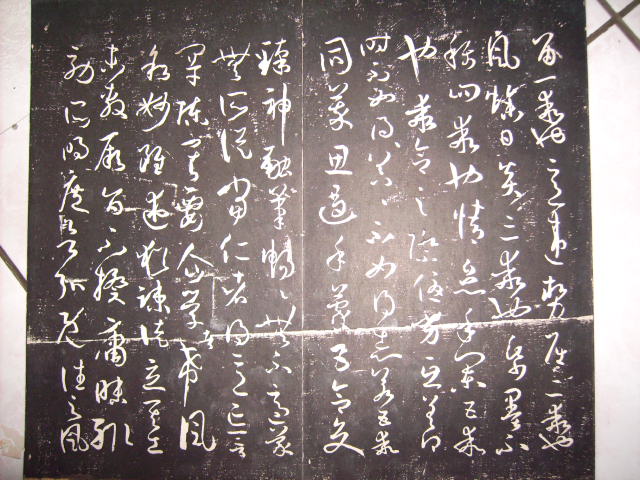 留一乖也意違勢屈二乖也
風燥日炎三乖也紙墨不
稱四乖也情怠手闌五乖
也乖合之際優劣互差得
時不如得器不如得志若五乖
同萃思遏手蒙五合交
臻神融筆暢〻無不適蒙
無所從當仁者得意忘言
罕陳其要企學者希風
敘妙雖述猶疎徒立其工
未敷厥旨不揆庸昧輒
效所明庶欲弘既往之風